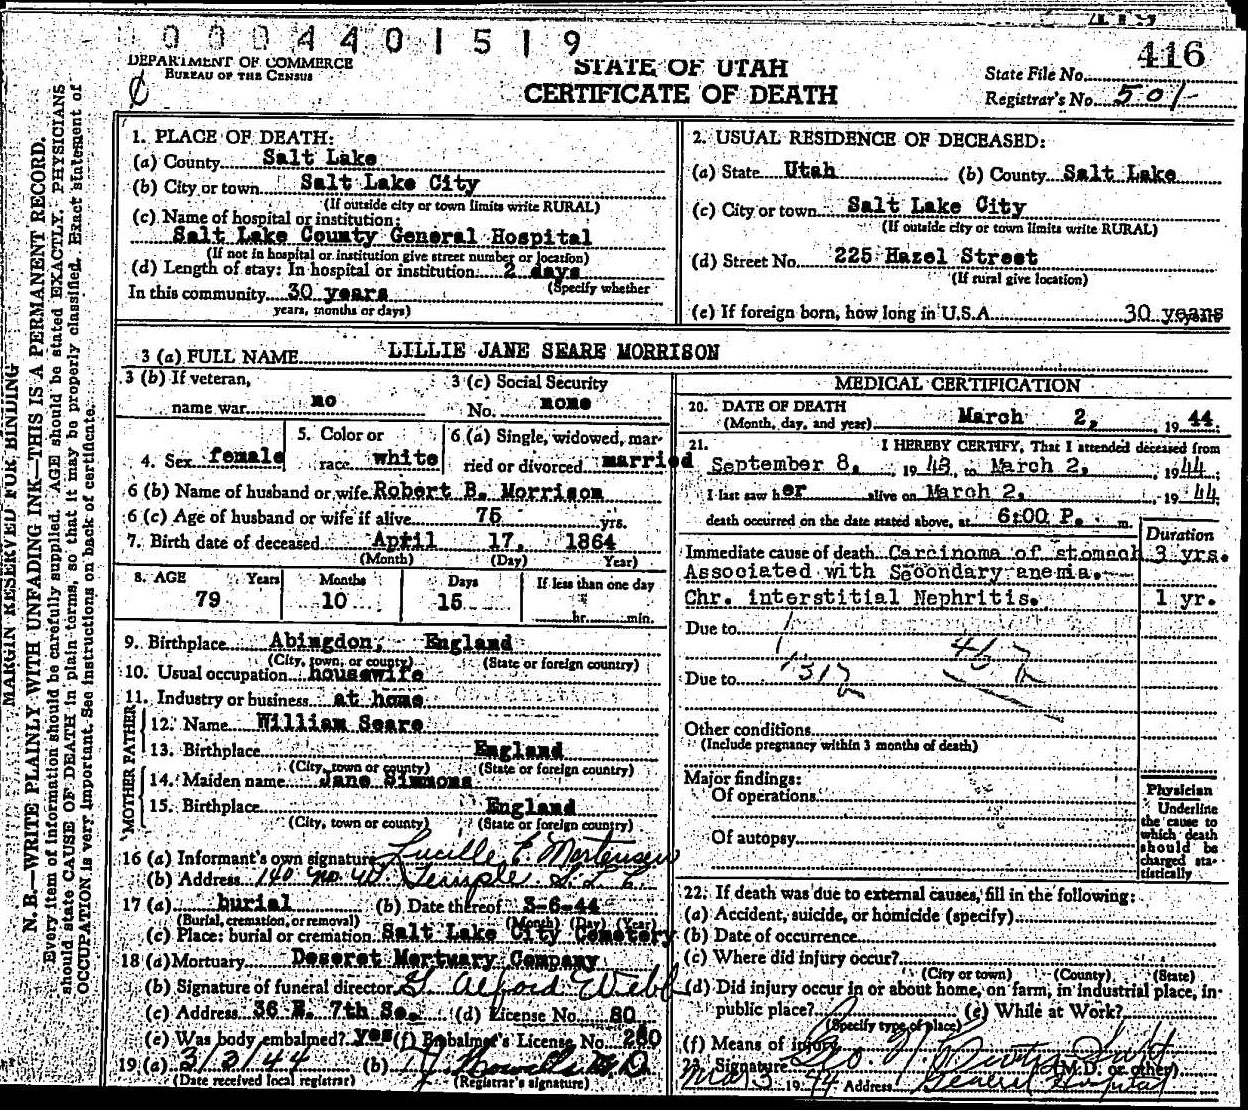 0 0 0 4 4 0 1 5 1 9
DEPARTMENT OF COMMERCE
BUREAU OF THE CENSUS
STATE OF UTAH
CERTIFICATE OF DEATH
416
State File No.
Registrar's No. 501-
MARGIN RESERVED FOR BINDING
N. B.—WRITE PLAINLY WITH UNFADING INK—THIS IS A PERMANENT RECORD.
Every item of information should be carefully supplied. AGE should be stated EXACTLY. PHYSICIANS
should state CAUSE OF DEATH in plain terms, so that it may be properly classified. Exact statement of
OCCUPATION is very important. See instructions on back of certificate.
1. PLACE OF DEATH:
(a) County Salt Lake
(b) City or town Salt Lake City
(If outside city or town limits write RURAL)
(c) Name of hospital or institution:
Salt Lake County General Hospital
(If not in hospital or institution give street number or location)
(d) Length of stay: In hospital or institution 2 days
(Specify whether
In this community 30 years
years, months or days)
2. USUAL RESIDENCE OF DECEASED:
(a) State Utah (b) County Salt Lake
(c) City or town Salt Lake City
(If outside city or town limits write RURAL)
(d) Street No. 225 Hazel Street
(If rural give location)
(e) If foreign born, how long in U.S.A. 30 years
3 (a) FULL NAME LILLIE JANE SEARE MORRISON
3 (b) If veteran,
name war no
3 (c) Social Security
No. none
4. Sex female
5. Color or
race white
6 (a) Single, widowed, mar-
ried or divorced married
6 (b) Name of husband or wife Robert B. Morrison
6 (c) Age of husband or wife if alive 75 yrs.
7. Birth date of deceased April 17, 1864
(Month) (Day) Year)
8. AGE Years Months Days If less than one day
79 10 15
hr. min.
9. Birthplace Abingdon, England
(City, town, or county) (State or foreign country)
10. Usual occupation housewife
11. Industry or business at home
FATHER
12. Name William Seare
13. Birthplace England
(City, town or county) (State or foreign country)
MOTHER
14. Maiden name Jane Simmons
15. Birthplace England
(City, town or county) (State or foreign country)
16 (a) Informant's own signature Lucille E. Mortensen
(b) Address 140 No. W. Temple S.L.C.
17 (a) burial (b) Date thereof 3-6-44
(Burial, cremation, or removal) (Month) (Day) (Year)
(c) Place: burial or cremation Salt Lake City Cemetery
18 (a) Mortuary Deseret Mortuary Company
(b) Signature of funeral director G. Alford Webb
(c) Address 36 E. 7th So. (d) License No. 80
(e) Was body embalmed? yes (f) Embalmer's License No. 260
19 (a) 3/3/44 (b) M.D.
(Date received local registrar) (Registrar's signature)
MEDICAL CERTIFICATION
20. DATE OF DEATH
(Month, day, and year) March 2, 19 44
21. I HEREBY CERTIFY, That I attended deceased from
September 8, 19 43, to March 2, 19 44;
I last saw her alive on March 2, 19 44
death occurred on the date stated above, at 6:00 P. m.
Duration
Immediate cause of death Carcinoma of stomach 3 yrs.
Associated with Secondary anemia.
Chr. interstitial Nephritis. 1 yr.
Due to
Due to
Other conditions
(Include pregnancy within 3 months of death)
Major findings:
Of operations
Of autopsy
Physician
Underline
the cause to
which death
should be
charged sta-
tistically
22. If death was due to external causes, fill in the following:
(a) Accident, suicide, or homicide (specify)
(b) Date of occurrence
(c) Where did injury occur?
(City or town) (County) (State)
(d) Did injury occur in or about home, on farm, in industrial place, in-
public place? (e) While at Work?
(Specify type of place)
(f) Means of injury
23. Signature (M.D. or other)
Mar 3 1944 Address General Hospital